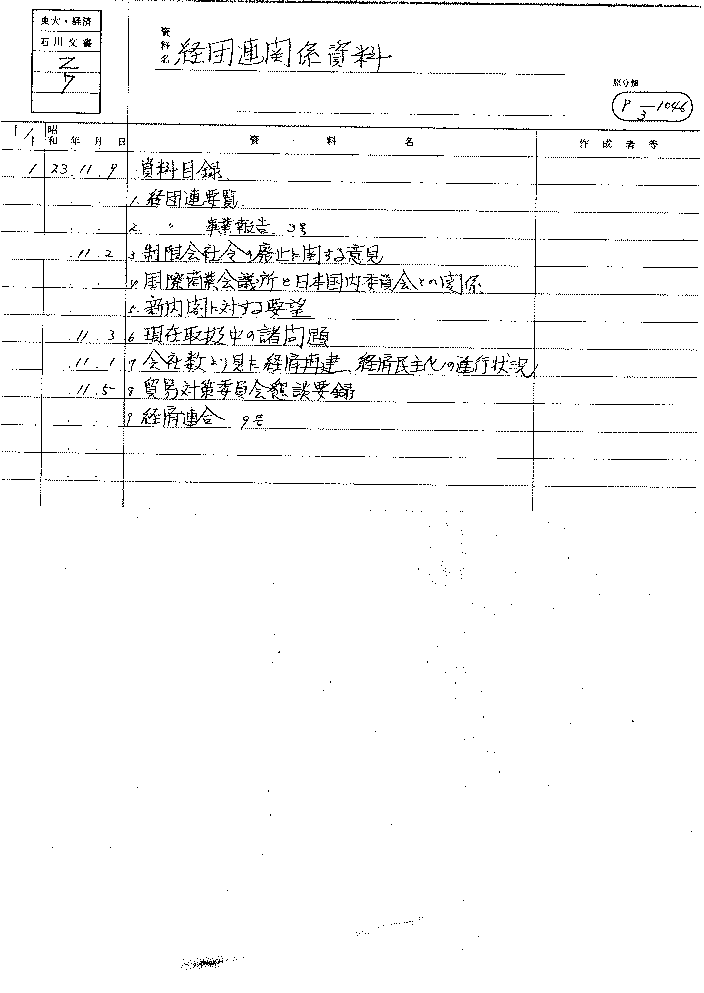 東大・経済
石川文書
Z
7
資料名 経団連関係資料
原分類
P 3-1046
1/1 昭和 年 月 日 資料名 作成者等
1 23.11.9 資料目録
1. 経団連要覧
2. 〃 事業報告 3号
11.2 3 制限会社令の廃止に関する意見
4 国際商業会議所と日本国内委員会との関係
5. 新内閣に対する要望
11.3 6 現在取扱中の諸問題
11.1 7 会社数より見た経済再建、経済民主化の進行状況
11.5 8 貿易対策委員会懇談要録
9 経済連合 9号